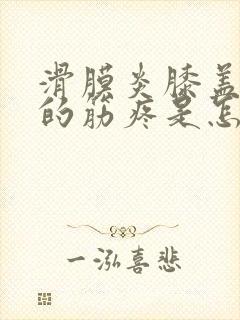 滑膜炎膝盖
的筋疼是怎
一泓喜悲